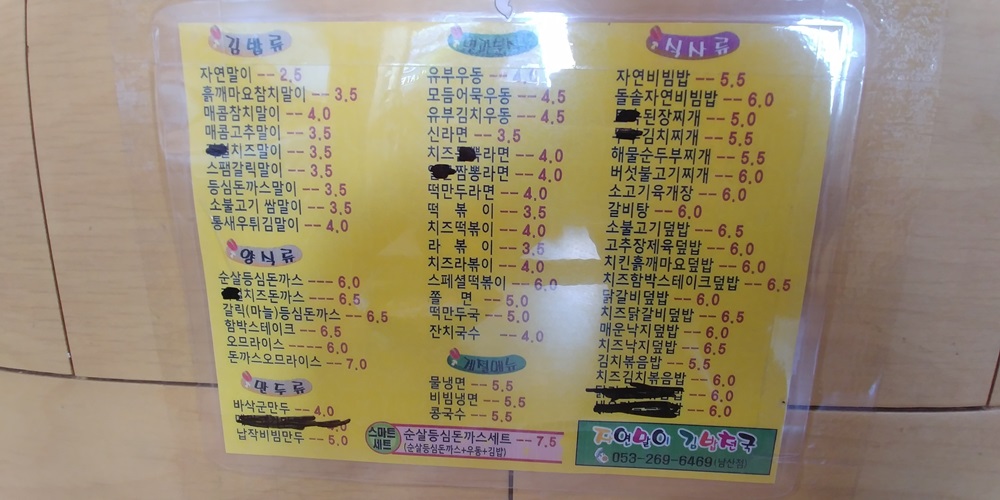 김밥류
자연말이 -- 2.5
흙깨마요참치말이 -- 3.5
매콤참치말이 -- 4.0
매콤고추말이 -- 3.5
치즈말이 -- 3.5
스팸갈릭말이 -- 3.5
등심돈까스말이 -- 3.5
소불고기 쌈말이 -- 3.5
통새우튀김말이 -- 4.0
순살등심돈까스 --- 6.0
치즈돈까스 --- 6.5
갈릭(마늘)등심돈까스 -- 6.5
함박스테이크 -- 6.5
오므라이스 ----- 6.0
돈까스오므라이스 -- 7.0
만두류
바삭군만두 -- 4.0
납작비빔만두 -- 5.0
유부우동 -- 4.0
모듬어묵우동 -- 4.5
유부김치우동 -- 4.5
신라면 -- 3.5
치즈 라면 -- 4.0
짬뽕라면 -- 4.0
떡만두라면 -- 4.0
떡 볶 이 -- 3.5
치즈떡볶이 -- 4.0
라 볶 이 -- 3.5
치즈라볶이 -- 4.0
스페셜떡볶이 -- 6.0
쫄 면 -- 5.0
떡만두국 -- 5.0
잔치국수 -- 4.0
계절메뉴
물냉면 -- 5.5
비빔냉면 -- 5.5
콩국수 -- 5.5
스마트세트 순살등심돈까스세트 -- 7.5
(순살등심돈까스+우동+김밥)
식사류
자연비빔밥 -- 5.5
돌솥자연비빔밥 -- 6.0
된장찌개 -- 5.0
김치찌개 -- 5.5
해물순두부찌개 -- 5.5
버섯불고기찌개 -- 6.0
소고기육개장 -- 6.0
갈비탕 -- 6.0
소불고기덮밥 -- 6.5
고추장제육덮밥 -- 6.0
치킨흙깨마요덮밥 -- 6.0
치즈함박스테이크덮밥 -- 6.5
닭갈비덮밥 -- 6.0
치즈닭갈비덮밥 -- 6.5
매운낙지덮밥 -- 6.0
치즈낙지덮밥 -- 6.5
김치볶음밥 -- 5.5
치즈김치볶음밥 -- 6.0
-- 6.0
-- 6.0
자연말이 김밥천국
053-269-6469(남산점)